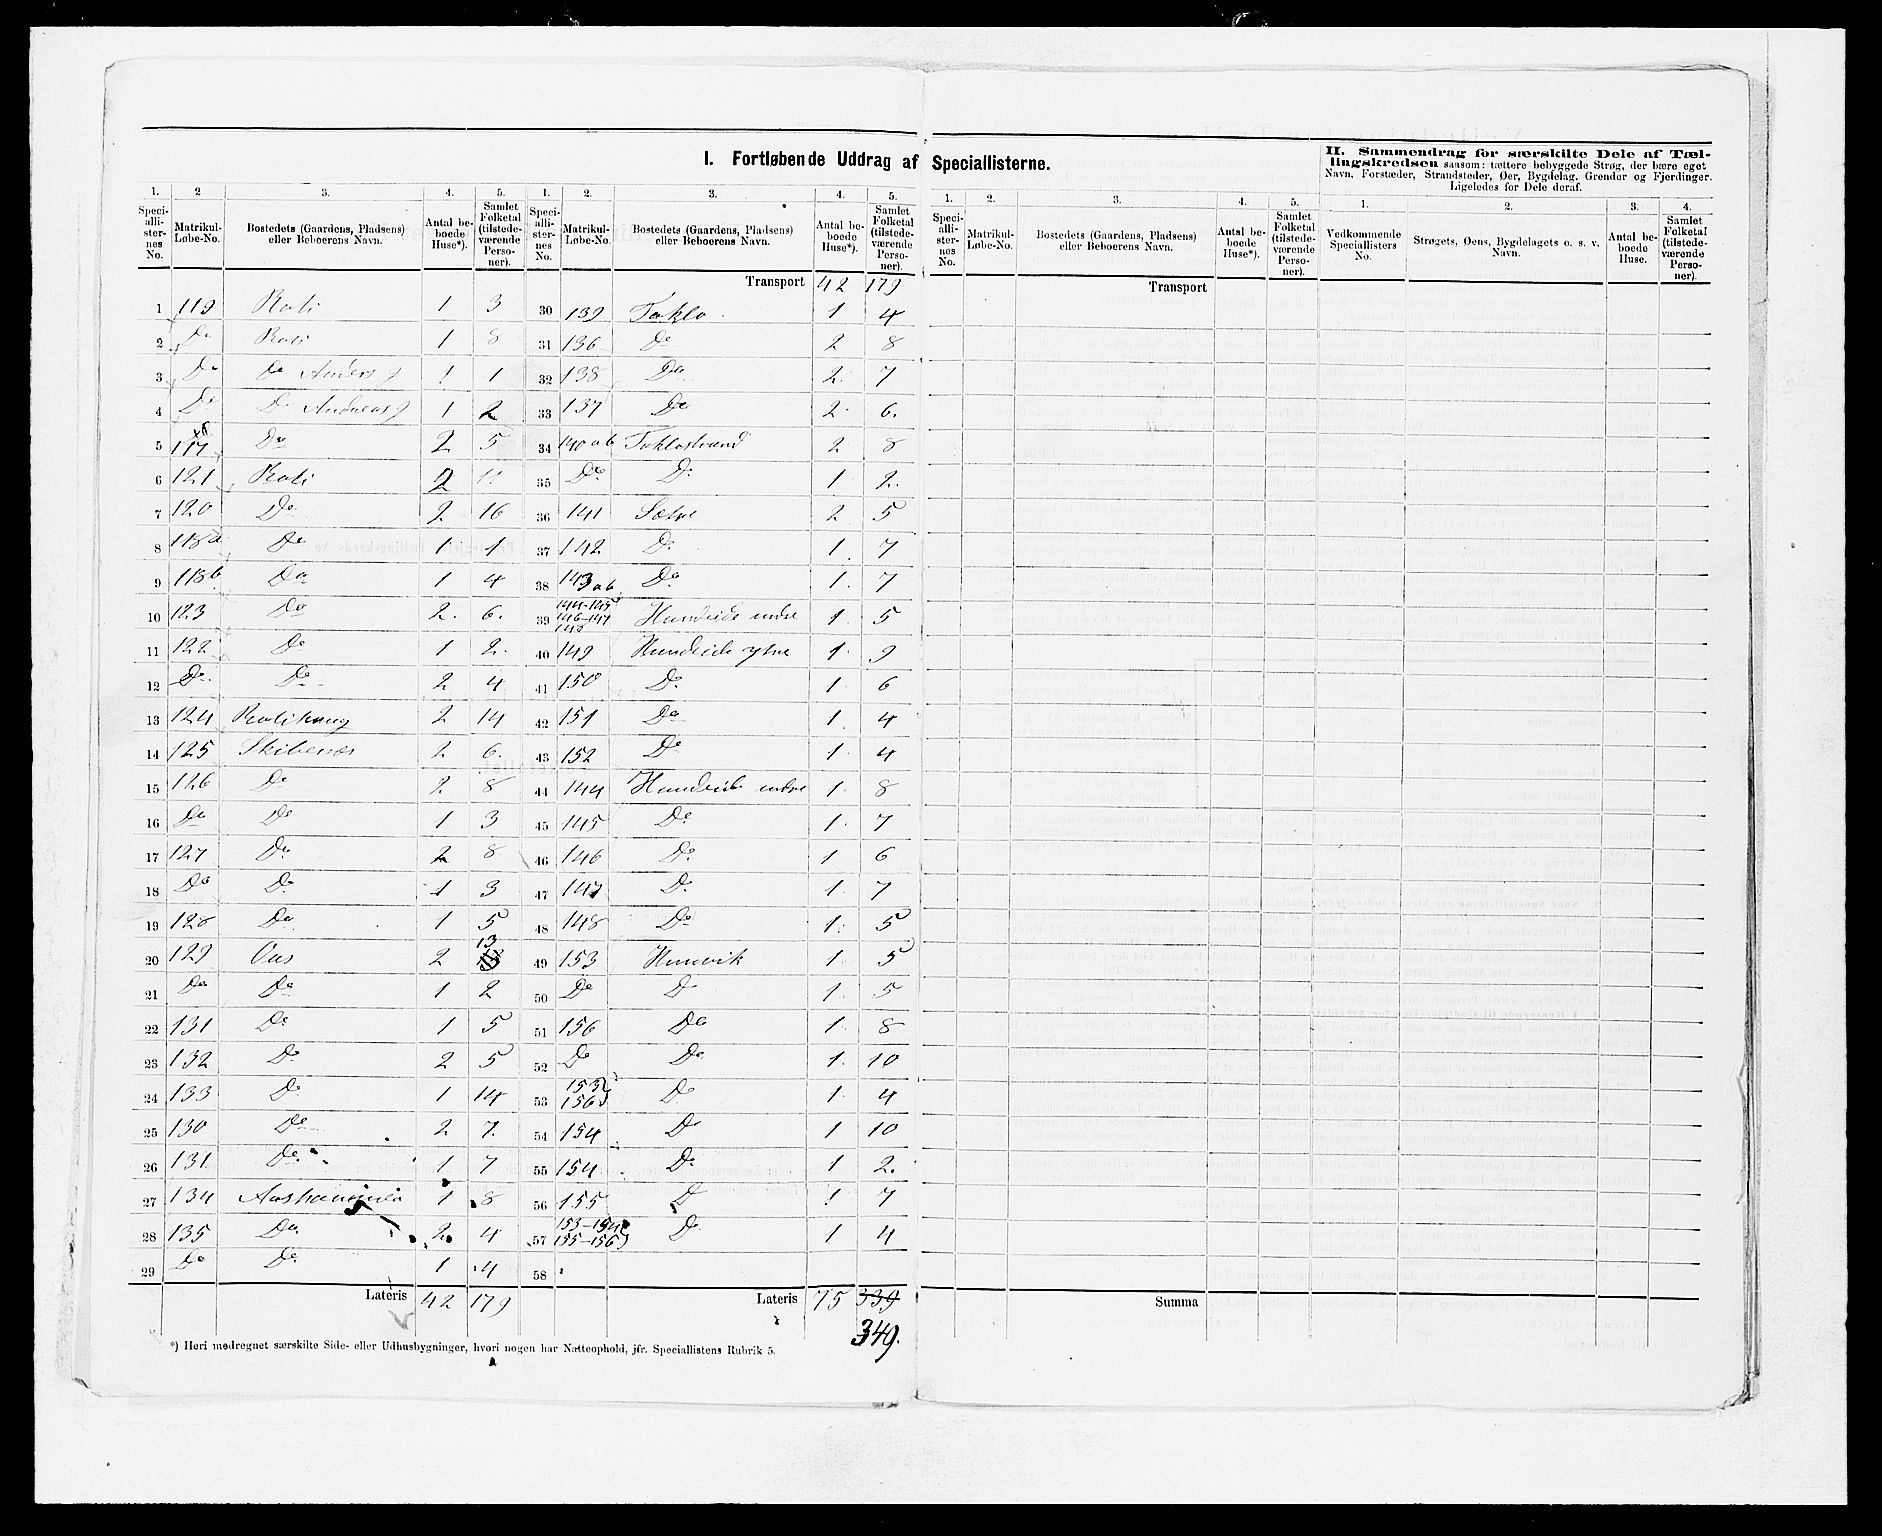 I. Fortløbende Uddrag af Speciallisterne.
II. Sammendrag for særskilte Dele af Tæl-
lingskredsen saasom: tættere bebyggede Strøg, der bære eget
Navn, Forstæder, Strandsteder, Øer, Bygdelag, Grender og Fjerdinger.
Ligeledes for Dele deraf.
1. 2 3. 4. 5. 1. 2. 3. 4. 5. 1. 2. 3. 4. 5. 1. 2. 3. 4.
Speci-alli-ster-nes No. Matrikul-Løbe-No. Bostedets (Gaardens, Pladsens) eller Beboerens Navn. Antal be-boede Huse*). Samlet Folketal (tilstede-værende Perso-ner).
Speci-alli-ster-nes No. Matrikul-Løbe-No. Bostedets (Gaardens, Pladsens) eller Beboerens Navn. Antal be-boede Huse*). Samlet Folketal (tilstede-værende Perso-ner).
Speci-alli-ster-nes No. Matrikul-Løbe-No. Bostedets (Gaardens, Pladsens) eller Beboerens Navn. Antal be-boede Huse*). Samlet Folketal (tilstede-værende Perso-ner).
Vedkommende Speciallisters No. Strøgets, Øens, Bygdelagets o. s. v. Navn. Antal be-boede Huse. Samlet Folketal (tilstede-værende Perso-ner).
1 119 Roti 1 3
2 Do Roti 1 8
3 Do Do Anders 1 1
4 Do Do Andreas 1 2
5 117 Do 2 5
6 121 Roti 2 11
7 120 Do 2 16
8 118a Do 1 1
9 118b Do 1 4
10 123 Do 2. 6.
11 122 Do 1 2.
12 Do. Do 2 4
13 124 Rotihaug 2 14
14 125 Skibenæs 2 6.
15 126 Do 2 8
16 Do Do 1 3
17 127 Do. 2 8
18 Do Do 1 3
19 128 Do 1 5
20 129 Aas 2 13
21 Do Do 1 2
22 131 Do 1 5
23 132 Do 2 5
24 133 Do 1 14
25 130 Do 2 7.
26 131 Do 1 7
27 134 1 8
28 135 Do. 2 4
29 Do Do 1 4
Lateris 42 179
Transport 42 179
30 139 Taklo 1 4
31 136 Do 2 8
32 138 Do 2. 7
33 137 Do 2. 6.
34 140ab Taklostrand 2 8
35 Do Do 1 2.
36 141 Sætre 2 5
37 142 Do. 1. 7
38 143ab Do 1. 7
39 144-145 146-147 148 Hundeide indre 1. 5
40 149 Hundeide ytre 1. 9
41 150 Do. 1. 6
42 151 Do 1. 4
43 152 Do 1. 4
44 144 Hundeide indre 1. 8
45 145 Do. 1. 7
46 146 Do. 1 6
47 147 Do. 1. 7
48 148 Do 1. 5
49 153 Hunvik 1. 5
50 Do D 1. 5
51 156 Do 1. 8
52 Do Do 1. 10
53 153 156 Do 1. 4
54 154 Do 1 10
55 154. Do. 1 2.
56 155 D 1 7
57 153-154 155-156 Do 1 4
58
Lateris 75 339
349.
Transport
Summa
*) Heri medregnet særskilte Side- eller Udhusbygninger, hvori nogen har Natteophold, jfr. Speciallistens Rubrik 5.